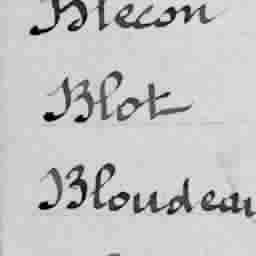 Blecon
Blot
Bloudeau